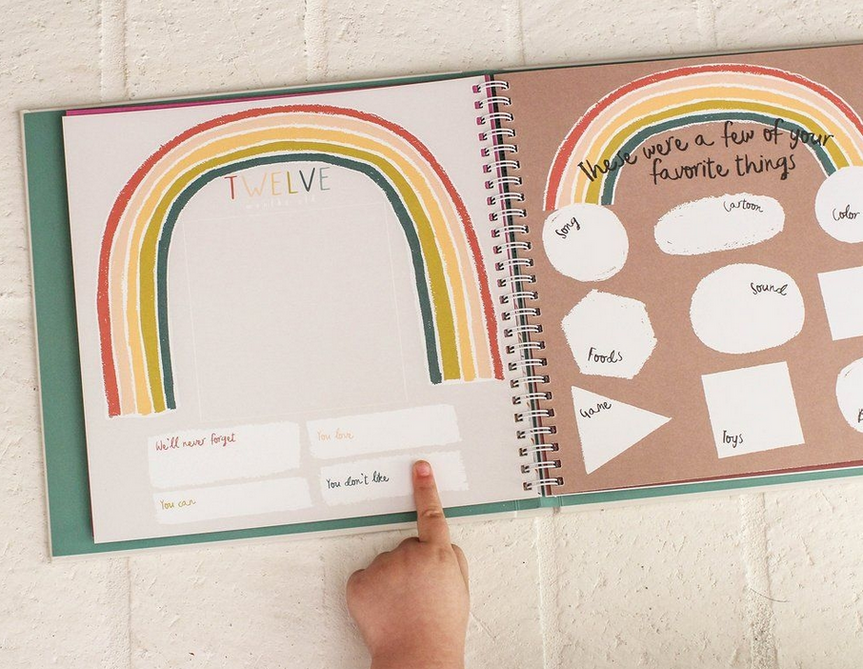 TWELVE
months old
We'll never forget
You love
You can
You don't like
These were a few of your
favorite things
Song
Cartoon
Color
Sound
Foods
Game
Toys